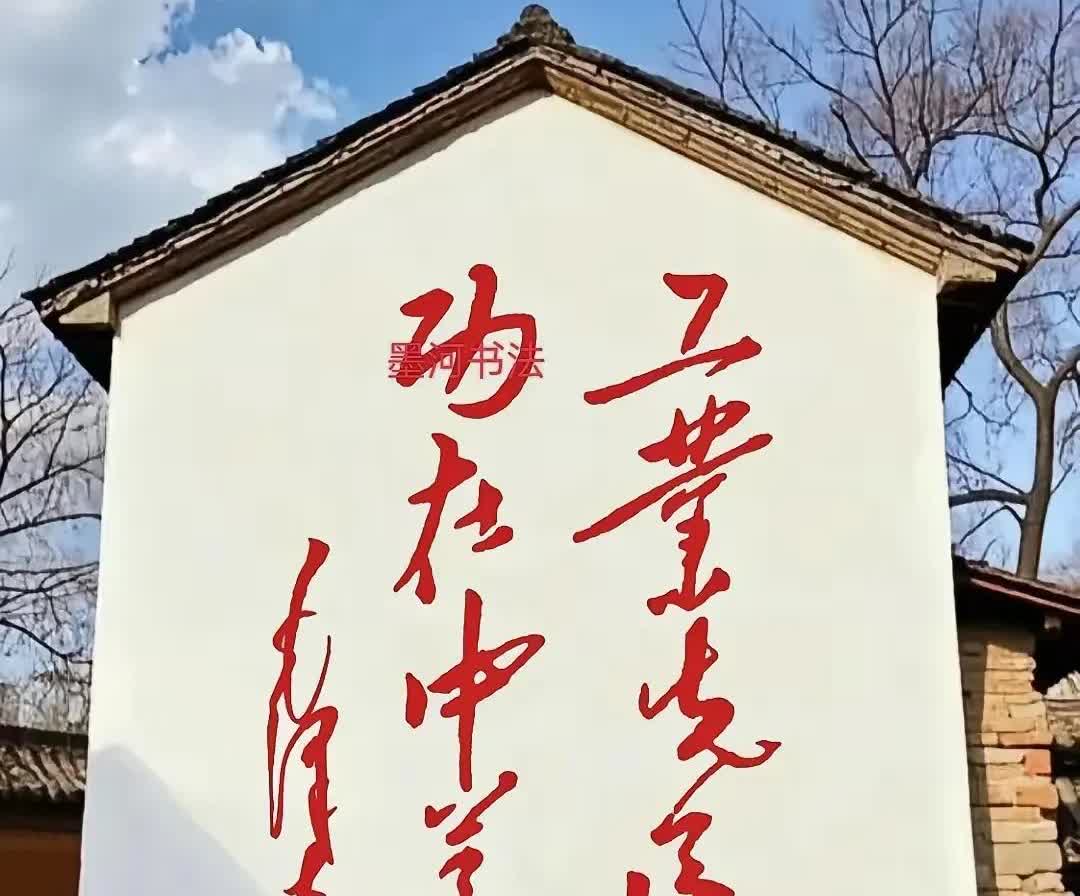 工業先
功在中
毛泽
墨河书法